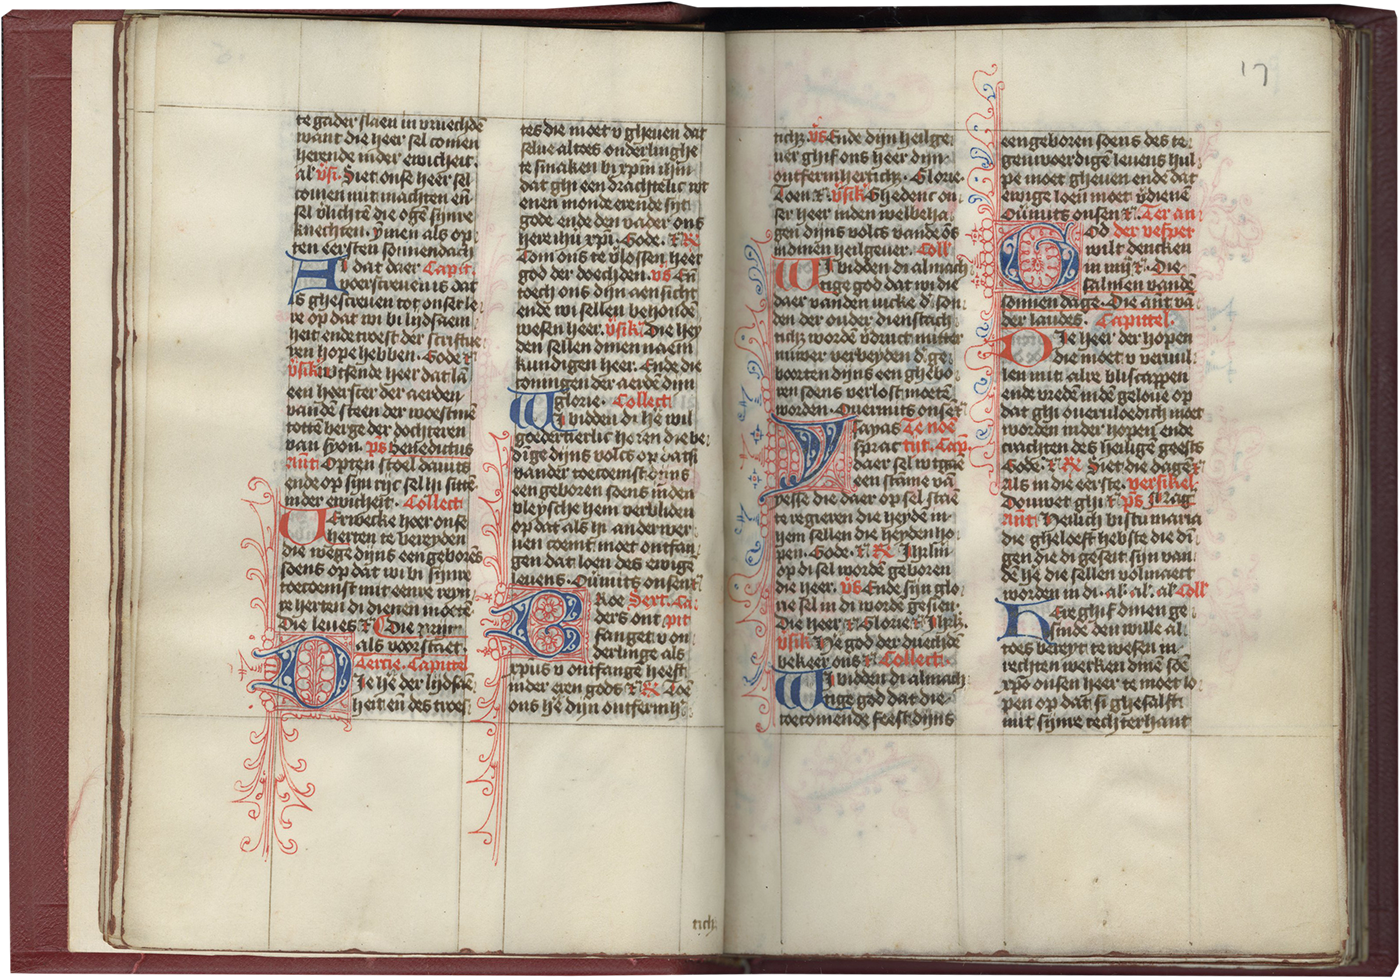 te gader slaen in vruechdē
want die heer sel comen
herende inder ewicheit.
al v̄si. Siet onse heer sel
comen mit machten eñ
sel v̄lichtē die ogē sijnre
knechten. ymen als op
ten eersten sonnendach
Al dat daer Capit.
voerscreuen is dat
is ghescreuen tot onser le
re op dat wi bi lijdsaem
heit ende troest der scriftue
ren hope hebben. Gode ⁊
v̄sik wtsende heer dat lā
een heerster der aerden
vandē steen der woestine
totten berge der dochteren
van syon. p̄s benedictus
ant. Opten stoel dauits
ende op sijn rijc sel hi sittē
inder ewicheit. Collect
Verwecke heer onse
herten te bereyden
die wege dijns eengeborēs
soens op dat wi bi sijnre
toecoemst mit eenre reyn
te herten di dienen moetē
Die leues ⁊ Die prijm
als voorstaet.
Tercie. Capittel
Die hē der lijdsā
heit en des troes
tes die moet v gheuen dat
selue al toes onderlinghe
te smaken bi xpm ihm
dat ghi eendrachtelic wt
enen monde erende sijt
gode ende den vader ons
here ihū xpi. Gode. ⁊ R̄
Com ons te v̄lossen heer
god der doechden. vs Eñ
toech ons dijn aensicht
ende wi sellen behoudē
wesen heer. v̄sik. Die hey
den sellen dinen naem
kundigen heer. Ende die
coningen der aerdē dijn
glorie. Collect
Wi bidden di hē wil
goedertierlic horen die be
dīge dijns volcs op datsi
vander toecoemst dijns
eengeboren soens inden
vleysche hem verbliden
op dat als hi anderwer
uen coemt moet ontfan
gen dat loen des ewige
leuens. Oūmits onsen ⁊
Broe Sext. Ca
ders ont pit
fanget v on
derlinge als
xpus v ontfange heeft
inder eren gods ⁊ R̄ Toe
ons hē dijn ontfermh
tich
tich. v̄s Ende dijn heilge
uer ghif ons heer dijn
ontfermhertich. Glorie.
Toen ⁊. v̄sik Ghedenc on
ser heer inden welbeha
gen dijns volcs vandē ōs
in dinen heilgeuer. Coll
Wi bidden di almach
tige god dat wi die
daer vanden iucke d' son
den der ouder dienstach
tich wordē v̄druct mitter
nuwer verbeyden d' ge
boerten dijns een ghebo
ren soens verlost moetē
worden. Ouermits onsē
Ysayas Te noē
sprac tijt. Cap.
daer sel wtgae
een stāme vā
yesse die daer op sel staē
te regieren die heydē in
hem sellen die heyden ho
pen. Gode. ⁊ R̄ Jhrlm
op di sel wordē geboren
die heer. v̄s Ende sijn glo
rie sel in di worde gesien.
Die heer ⁊ Glorie ⁊ Jhrl.
v̄sik He god der duechdē
bekeer ons ⁊ Collect.
Wi bidden di almach
tige god dat die
toecomende feest dijns
eengeboren soens des te
genwoerdige leuens hul
pe moet gheuen ende dat
ewige loen moet v̄dienē
Oūmits onsen ⁊. Ter an
God der vesper
wilt dencken
in mij ⁊. Die
salmen vandē
sonnendage. Die ant vā
der laudes. Capittel.
Die heer der hopen
die moet v veruul
len mit alre bliscappen
ende vrede indē geloue op
dat ghi oueruloedich moet
worden in der hopen ende
crachten des heilige geests
Gode ⁊ R̄ Siet die dage ⁊
als in die eerste. versikel
Douwet ghi ⁊ p̄s Mag
ant. Heilich bistu maria
die gheloeft hebste die di
gen die di geseit sijn van
dē hē die sellen volmaect
worden in di. al. al. al Coll
Here ghif dinen ge
sinde den wille al
toes bereyt te wesen in
rechten werken dinē soē
xpō onsen heer te moet lo
pen op dat si ghesalst
mit sijnre rechterhant
17